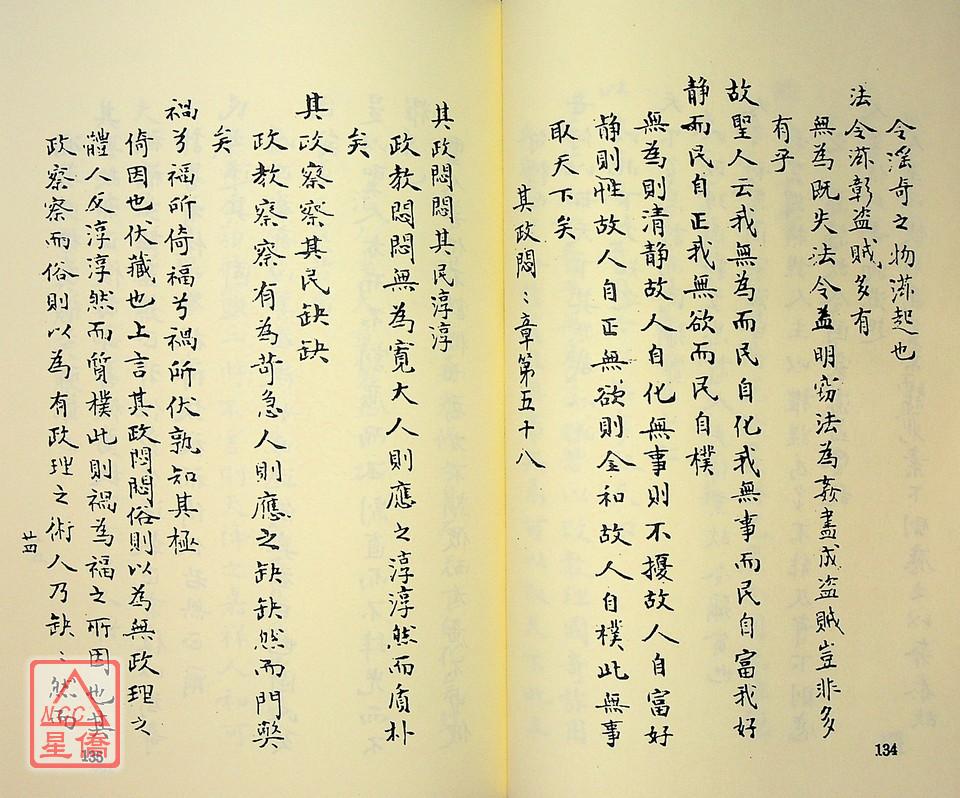 令滛奇之物滋起也
法令滋彰盗賊多有
無為既失法令益明竊法為姦盡成盗賊豈非多
有乎
故聖人云我無為而民自化我無事而民自富我好
静而民自正我無欲而民自樸
無為則清静故人自化無事則不擾故人自富好
静則性故人自正無欲則全和故人自樸此無事
取天下矣
其政悶〻章第五十八
134
其政悶悶其民淳淳
政教悶悶無為寛大人則應之淳淳然而质朴
矣
其政察察其民缺缺
政教察察有為苛急人則應之缺缺然而
矣
禍兮福所倚福兮禍所伏孰知其極
倚因也伏藏也上言其政悶悶俗則以為無政理之
體人反淳淳然而質樸此則禍為福之所因也其
政察察而俗則以為有政理之術人乃缺〻然而
廿四
135
NCC
星僑